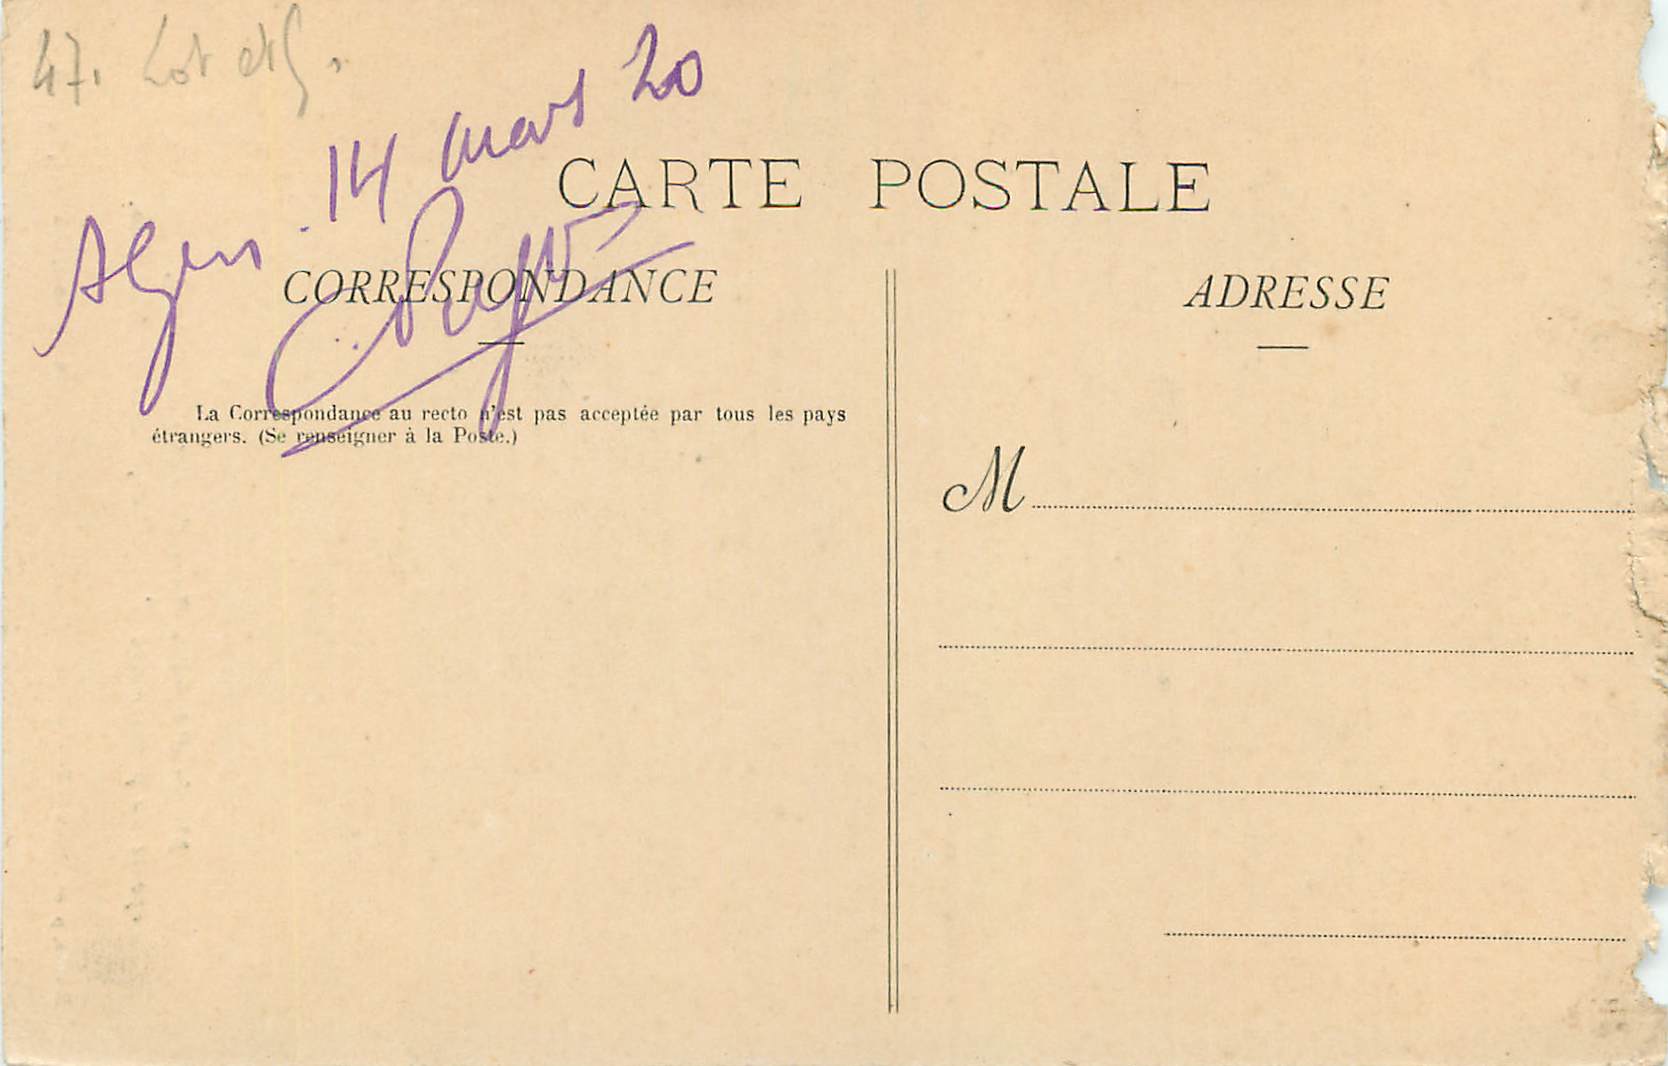 47. Lot et G.
Agen. 14 mars 20
CARTE POSTALE
CORRESPONDANCE
ADRESSE
La Correspondance au recto n'est pas acceptée par tous les pays
étrangers. (Se renseigner à la Poste.)
M